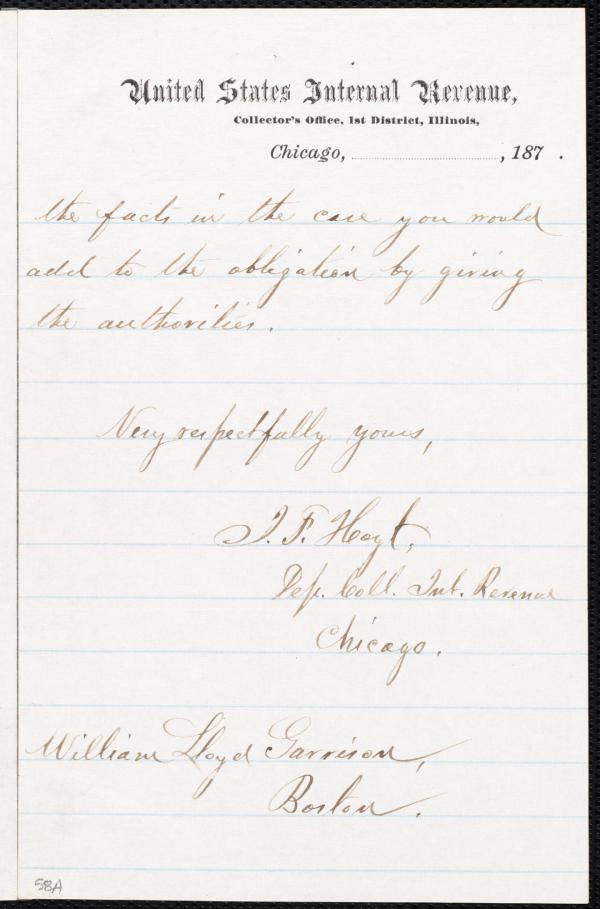 United States Internal Revenue,
Collector's Office, 1st District, Illinois,
Chicago, , 187 .
the facts in the case you would
add to the obligation by giving
the authorities.
Very respectfully yours,
J. F. Hoyt,
Dep. Coll. Int. Revenue
Chicago.
William Lloyd Garrison,
Boston.
58A